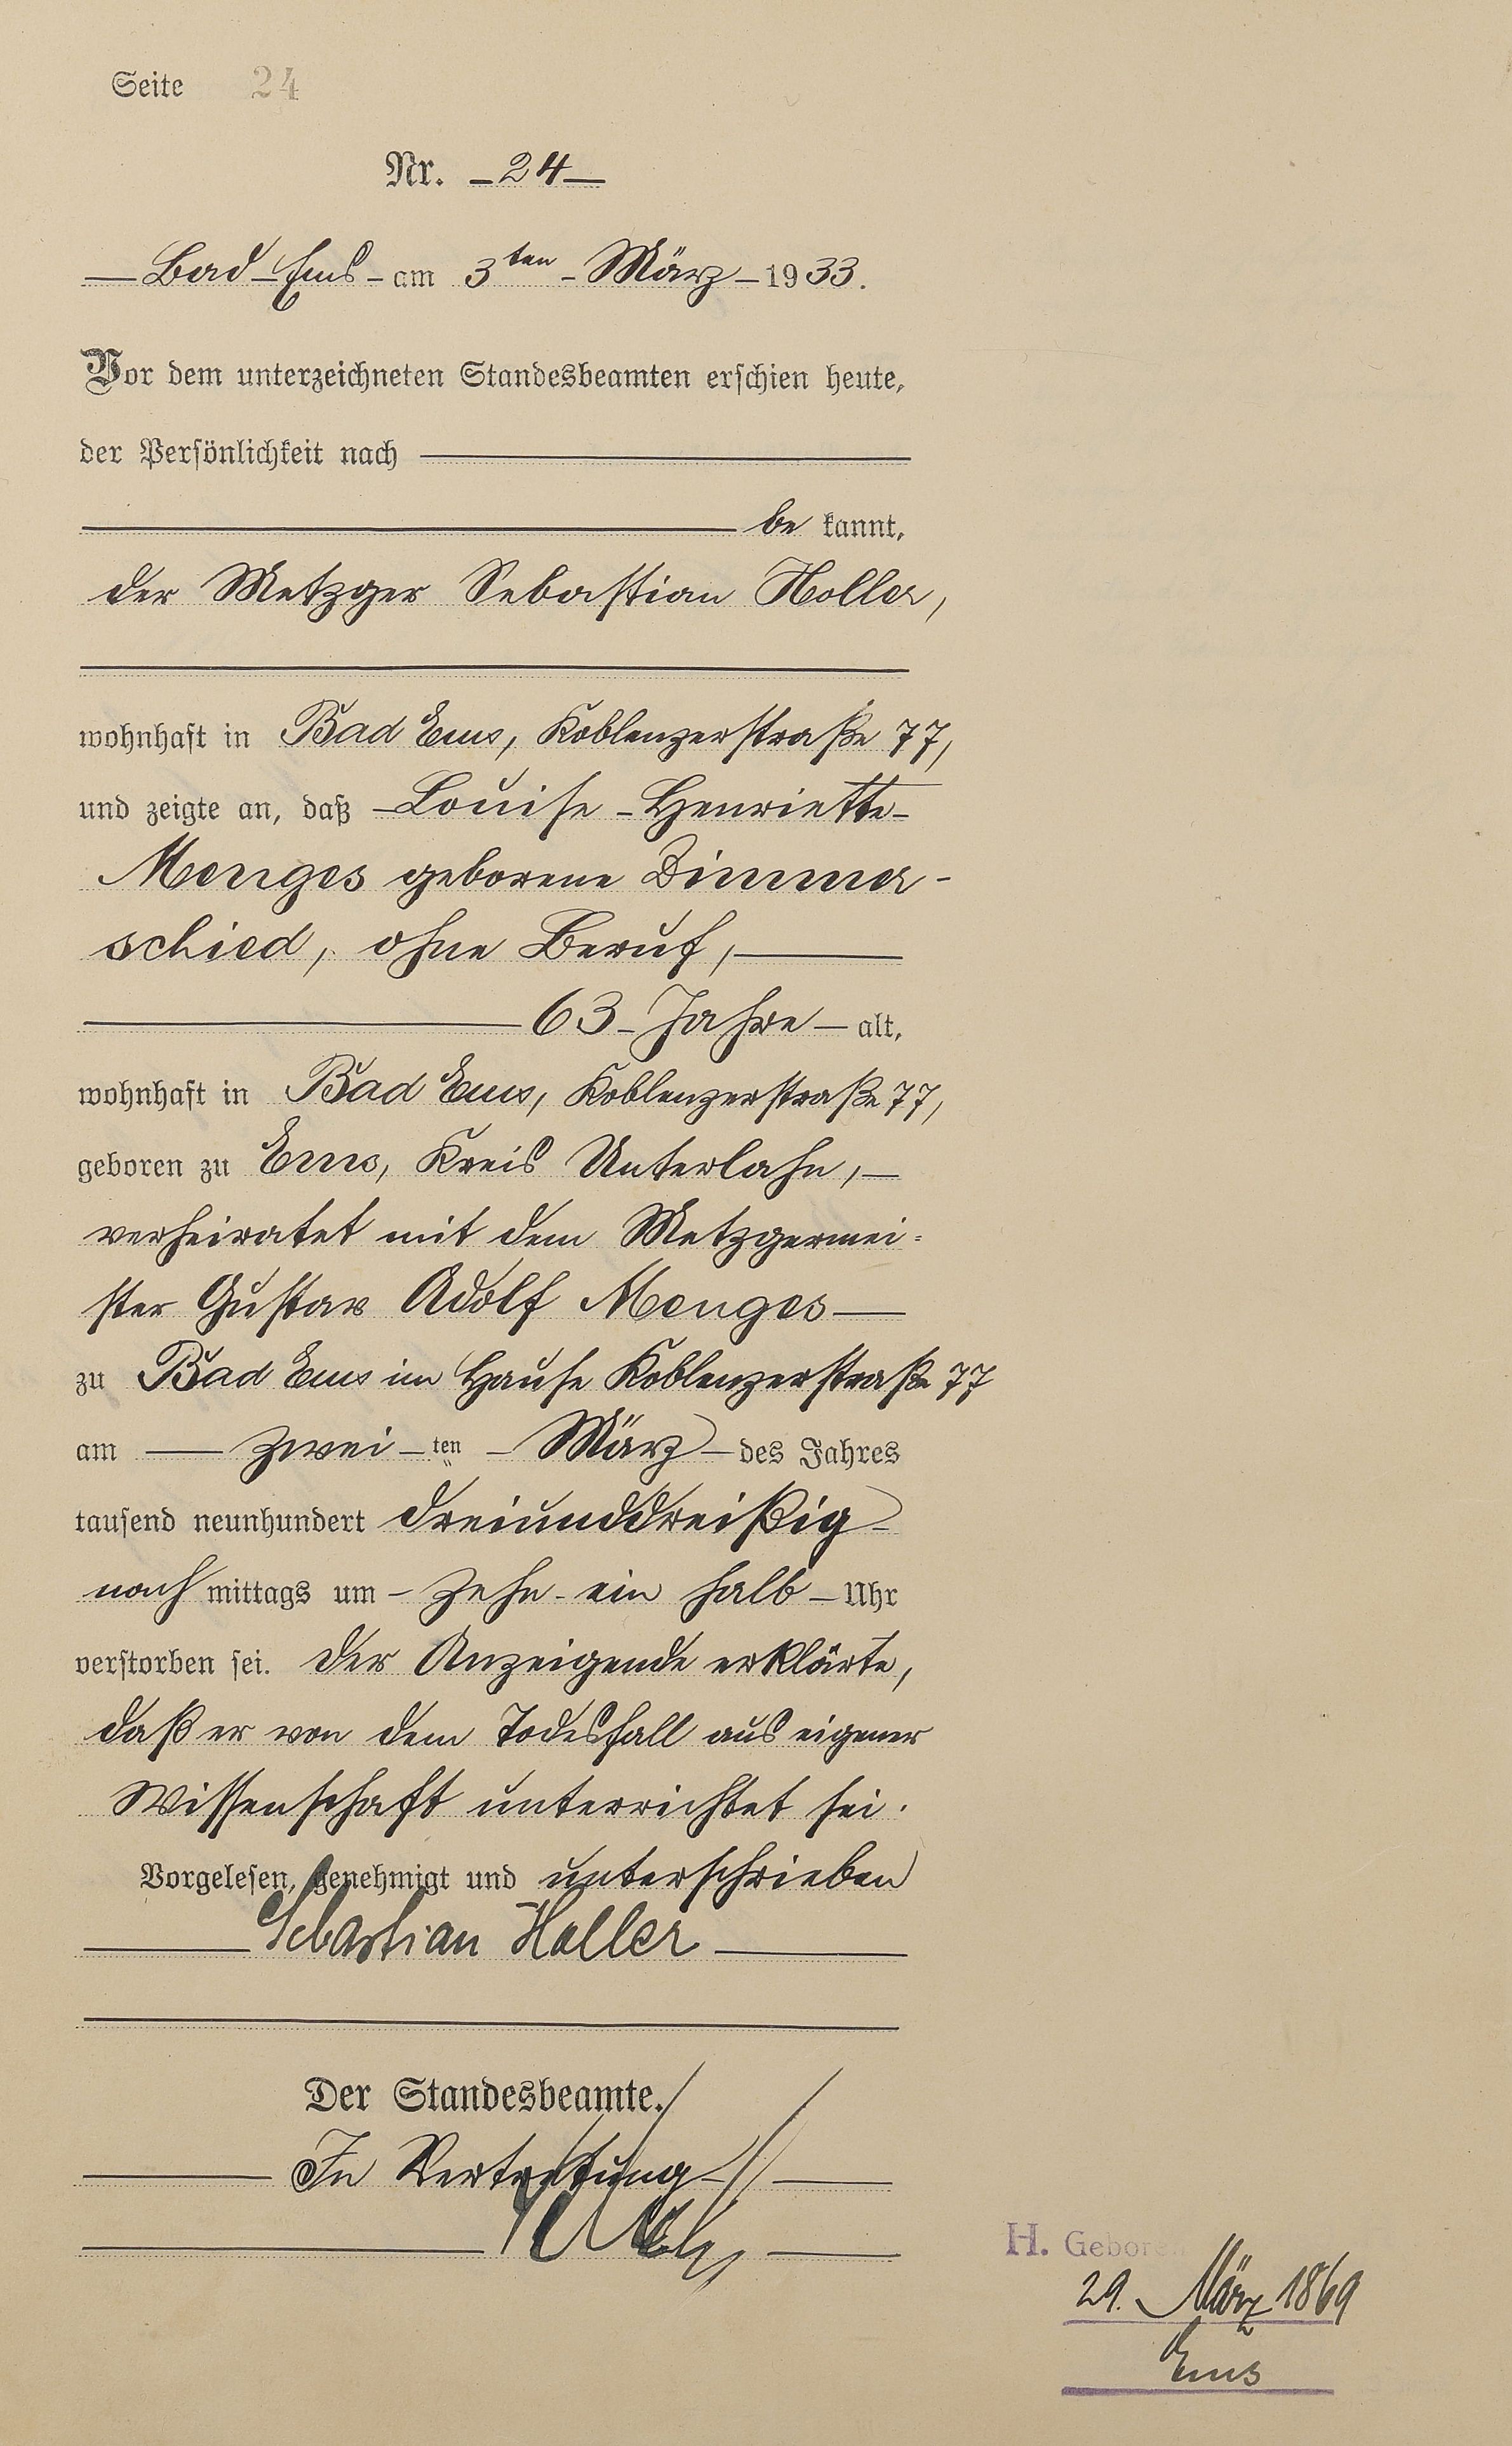 Seite 24
Nr. 24
Bad Ems am 3ten März 1933.
Vor dem unterzeichneten Standesbeamten erschien heute,
der Persönlichkeit nach
be kannt,
der Metzger Sebastian Holler,
wohnhaft in Bad Ems, Koblenzerstraße 77,
und zeigte an, daß Louise Henriette
Menges geborene Zimmer-
schied, ohne Beruf,
63 Jahre alt,
wohnhaft in Bad Ems, Koblenzerstraße 77,
geboren zu Ems, Kreis Unterlahn,
verheiratet mit dem Metzgermei-
ster Gustav Adolf Menges
zu Bad Ems im Hause Koblenzerstraße 77
am zwei ten März des Jahres
tausend neunhundert dreiunddreißig
nach mittags um zehn ein halb Uhr
verstorben sei. Der Anzeigende erklärte,
daß er von dem Todesfall aus eigener
Wissenschaft unterrichtet sei.
Vorgelesen, genehmigt und unterschrieben
Sebastian Holler
Der Standesbeamte.
In Vertretung
H. Geboren
29. März 1869
Ems